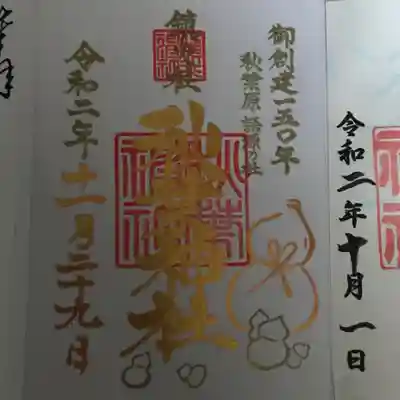 御創建一五〇年
秋葉原 語源の社
鎮火社
秋葉神社
令和二年十一月二十九日
令和二年十月一日